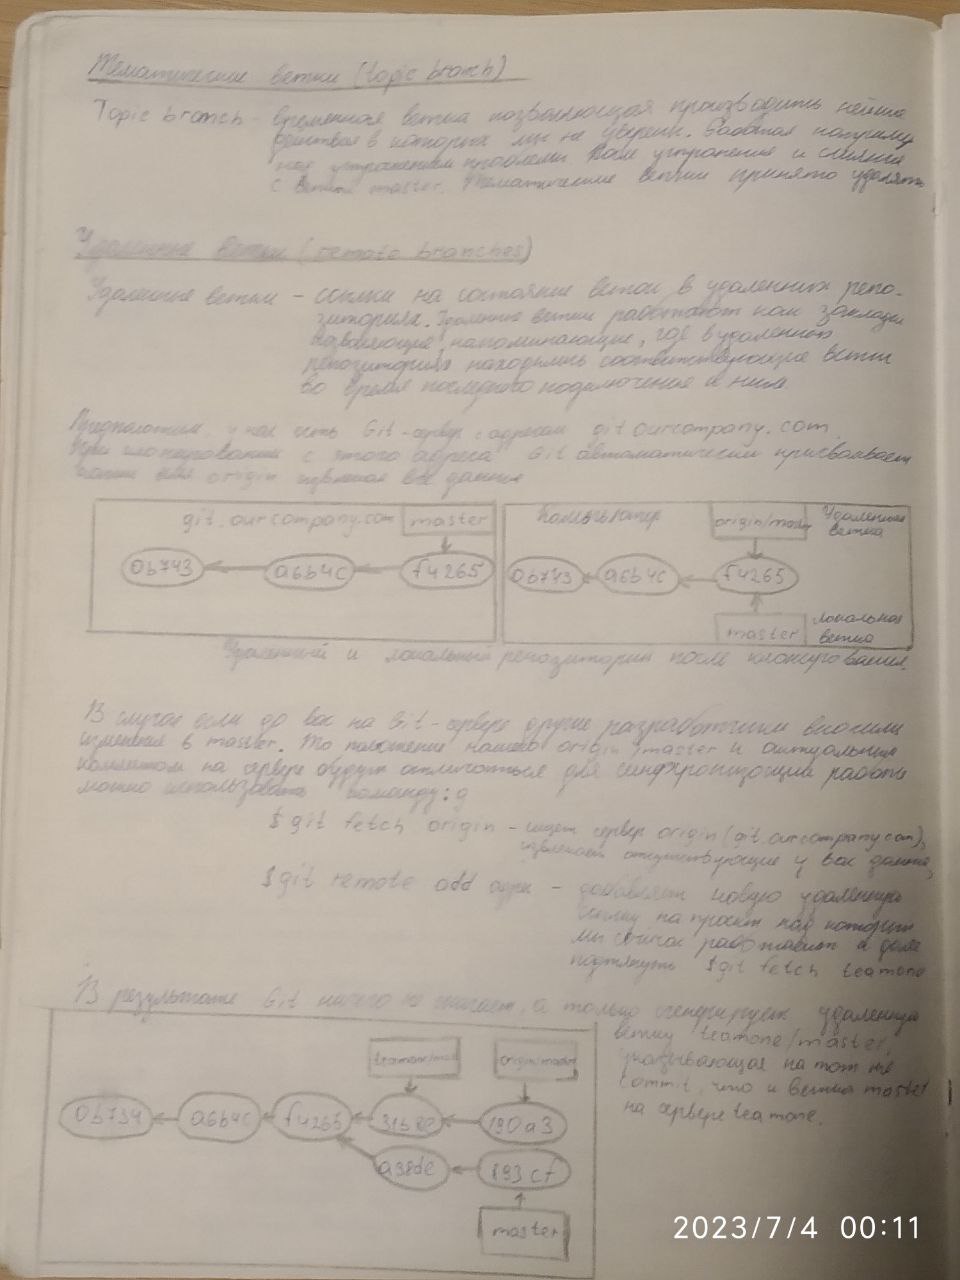 Тематические ветки (topic branch)
Topic branch - временная ветка позволяющая производить некие
действия в которых мы не уверены. Работая например
над устранением проблемы. После устранения и слияния
с веткой master. Тематические ветки принято удалять
Удаленные ветки (remote branches)
Удаленные ветки - ссылки на состояние веток в удаленных репо-
зиториях. Удаленные ветки работают как закладки
напоминающие, где в удаленных
репозиториях находились соответствующие ветки
во время последнего подключения к ним.
Предположим, у нас есть Git-сервер с адресом git.ourcompany.com
При клонировании с этого адреса Git автоматически присваивает
имя origin извлекая все данные
git.ourcompany.com master
0b743 a6b4c f4265
Компьютер origin/master Удаленная
ветка
0b743 a6b4c f4265
master Локальная
ветка
Удаленный и локальный репозитории после клонирования.
В случае если до вас на Git-сервере другие разработчики вносили
изменения в master. То положение нашего origin/master и актуальным
коммитом на сервере будут отличаться для синхронизации работы
можно использовать команду:
$ git fetch origin - ищет сервер origin (git.ourcompany.com),
извлекает отсутствующие у вас данные,
$git remote add - добавляет новую удаленную
ссылку на проект над которым
мы сейчас работаем а далее
подтянуть $git fetch teamone
В результате Git ничего не скачает, а только сгенерирует удаленную
ветку teamone/master,
указывающая на тот же
commit, что и ветка master
на сервере teamone.
teamone/mast origin/master
0b734 a6b4c f4265 190a3
a38de 893cf
master
2023/7/4 00:11